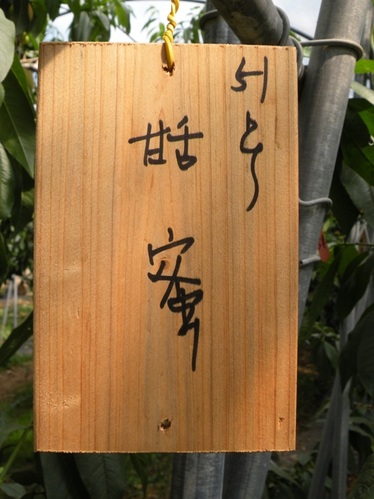 51号
甛蜜